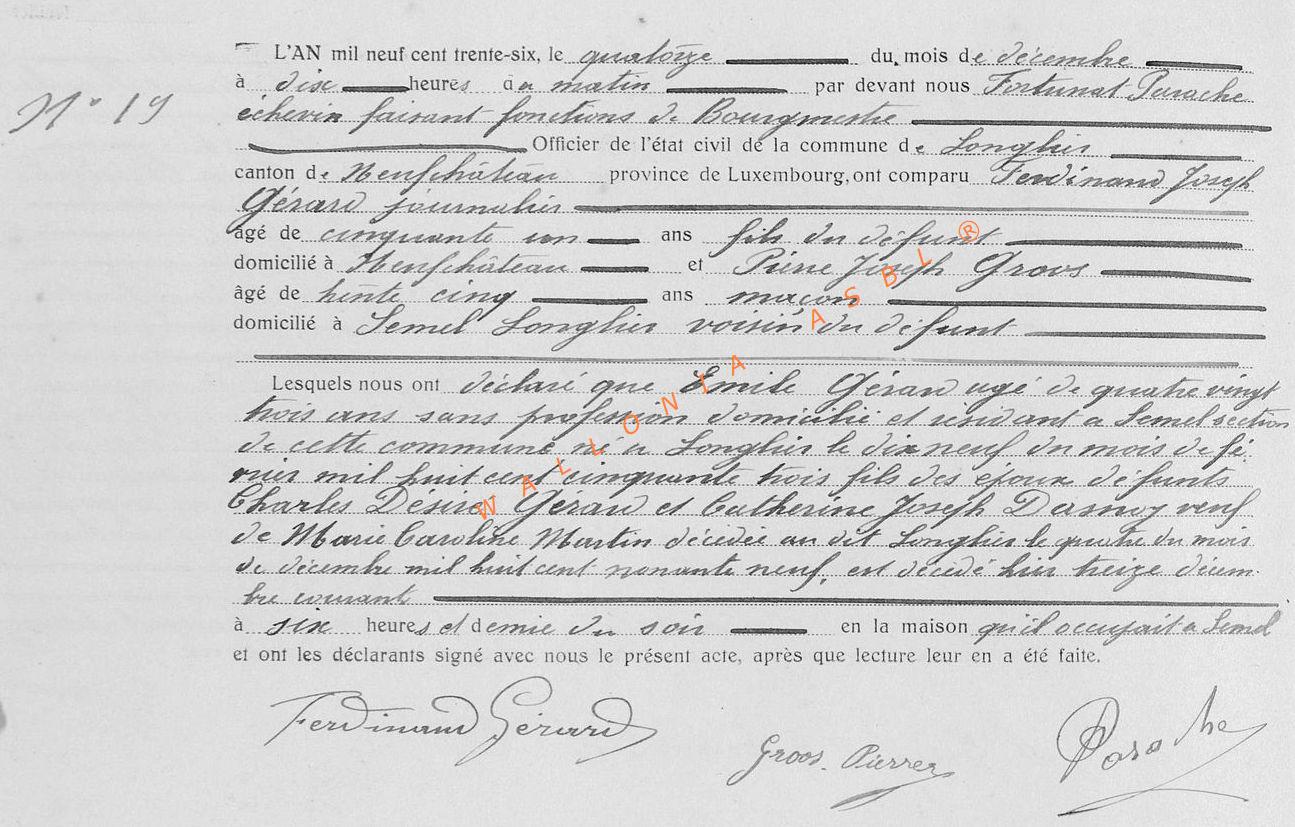 L'AN mil neuf cent trente-six, le quatorze du mois de décembre
N° 19
à dix heures du matin par devant nous Fortunat Parache
échevin faisant fonctions de Bourgmestre
Officier de l'état civil de la commune de Longlier
canton de Neufchâteau province de Luxembourg, ont comparu Ferdinand Joseph
Gérard journalier
âgé de cinquante un ans fils du défunt
domicilié à Neufchâteau et Pierre Joseph Groos
âgé de trente cinq ans maçon
domicilié à Semel Longlier voisin du défunt
Lesquels nous ont déclaré que Emile Gérard agé de quatre vingt
trois ans sans profession domicilié et résidant a Semel section
de cette commune né à Longlier le dix neuf du mois de fé-
vrier mil huit cent cinquante trois fils des époux défunts
Charles Désiré Gérard et Catherine Joseph Dasnoy veuf
de Marie Caroline Martin décédée au dit Longlier le quatre du mois
de décembre mil huit cent nonante neuf, est décédé hier treize décem
bre courant
à six heures et demie du soir en la maison qu'il occupait a Semel
et ont les déclarants signé avec nous le présent acte, après que lecture leur en a été faite.
Ferdinand Gérard
Groos. Pierre
Parache
WALLONIA ASBL ®